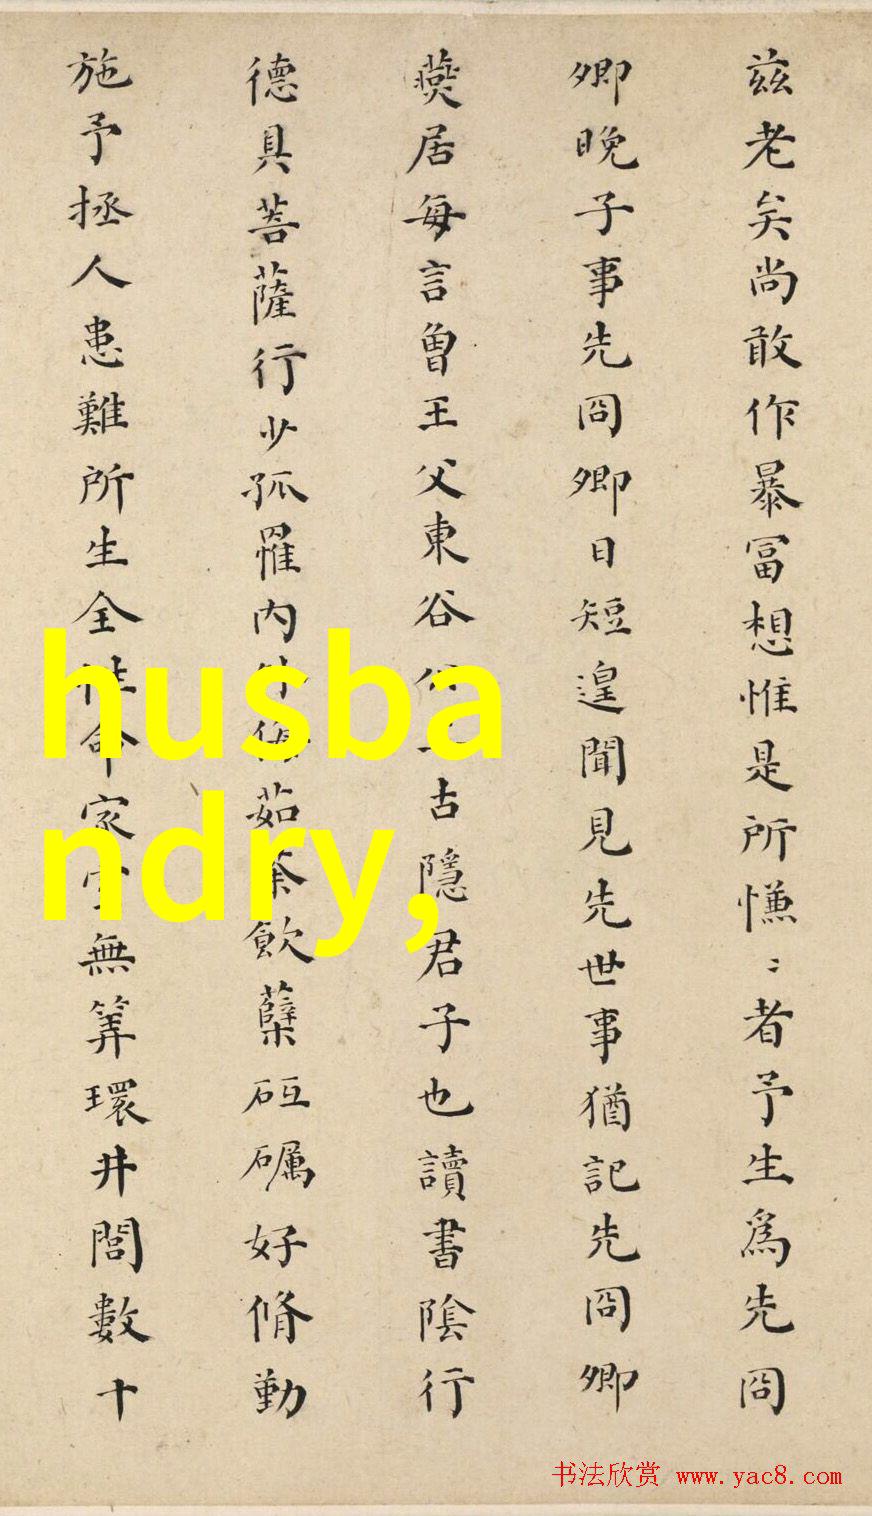 茲老矣尚敢作暴冨想惟是所慊〻者予生爲先冏
卿晚子事先冏卿日短遑聞見先世事猶記先冏卿
燕居每言曾王父東谷公上古隱君子也讀書隂行
德具菩薩行少孤罹内外侮茹荼飲蘖砥礪好脩勤
施予拯人患難所生全性命家室無筭環井閭數十
husba
ndry,
书法欣赏 www.yac8.com